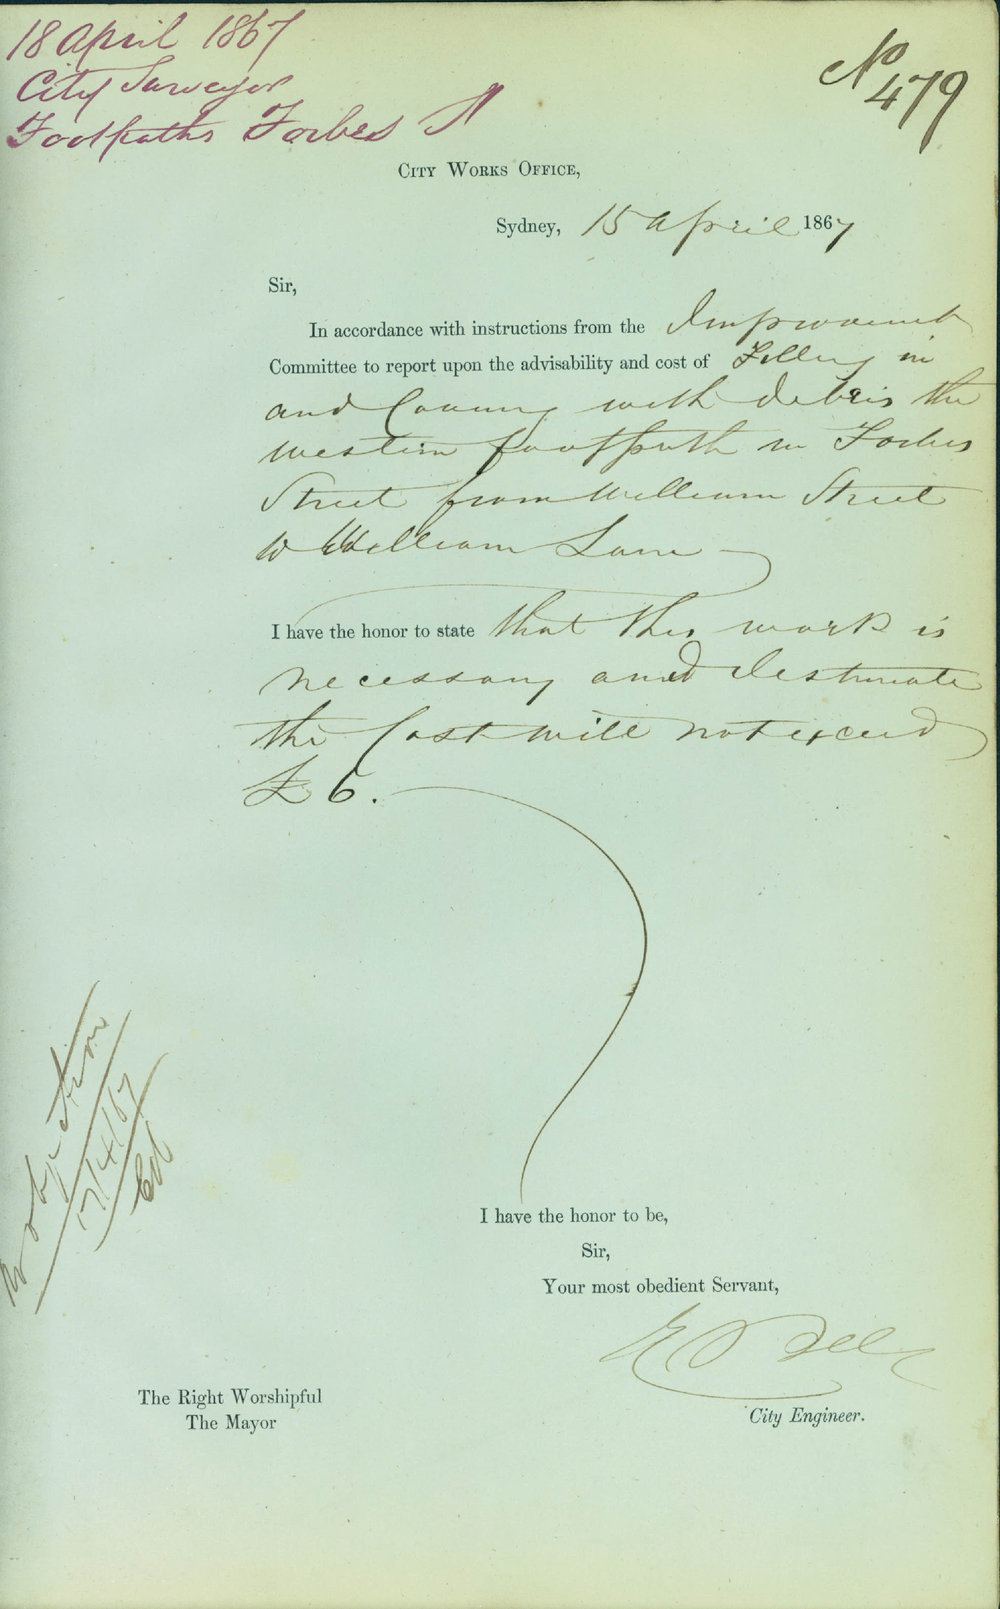 18 April 1867
City Surveyor
Footpaths Forbes St
No 479
City Works Office,
Sydney, 15 April 1867
Sir,
In accordance with instructions from the Improvement
Committee to report upon the advisability and cost of Filling in
and Covering with debris the
western footpath in Forbes
Street from William Street
to William Lane
I have the honor to state that this work is
necessary and I estimate
the Cost will not exceed
£6.
No objection
17/4/67
I have the honor to be,
Sir,
Your most obedient Servant,
E Bell
City Engineer.
The Right Worshipful
The Mayor